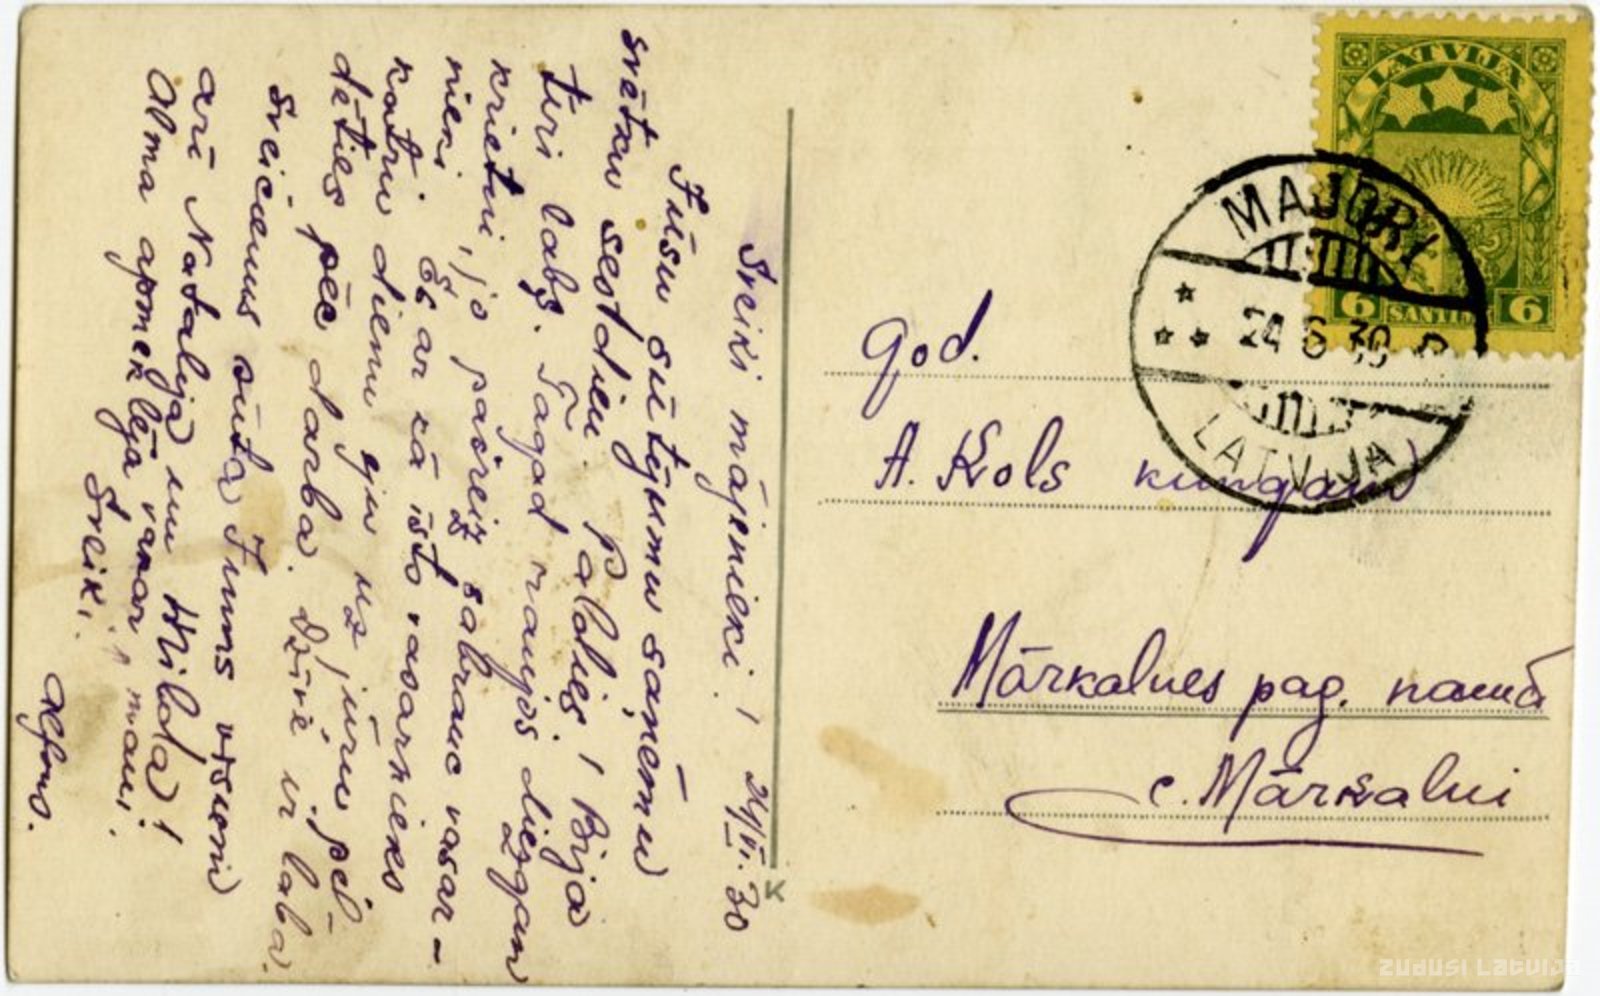 Sveiki mājenieki! 24/VI. 30
Jūsu sūtījumu saņēmu
svētku sestdien. Paldies! Bija
ļoti labs. Tagad raujos diezgan
krietni, jo pašreiz sabrauc vasar-
nieki. Es ar kā īsto vasarnieks
katru dienu eju uz jūru pel-
dēties pēc darba. Dzīve ir laba.
Sveicienus sūta Jums visiem
arī Natalija un Hilda!
Alma apmeklēja vakar mani.
Sveiki!
Alfons.
LATVIJA
6 SANTIMI 6
MAJORI
24 6 30
LATVIJA
God.
A. Kols kungam
Mārkalnes pag. namā
c. Mārkalni
K
ZUDUSI LATVIJA